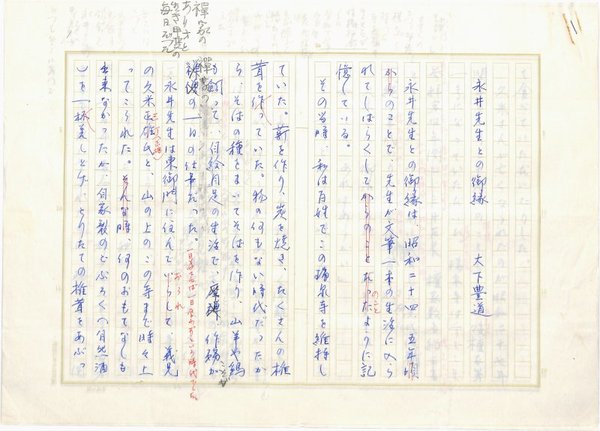 永井先生との御縁　　大下豊道
永井先生との御縁は、昭和二十四、五年頃
からのことで、先生が文筆一本の生活に入ら
れてしばらくしてからのことだったように記
憶している。
その当時、私は百姓でこの瑞泉寺を維持し
ていた。薪を作り、炭を焼き、たくさんの椎
茸を作っていた。物の何もない時代だったか
ら、そばの種をまいてそばを作り、山羊や鶏
も飼って、自給自足の生活で、作務が
一日の仕事だった。
永井先生は東御門に住んでおられ
の久米正雄氏と、山の上のこの寺まで時々上
ってこられた。そんな時、何のおもてなしも
出来なかったが、自家製のどぶろく（自然酒
）を一杯差し上げ、とりたての椎茸をあぶっ